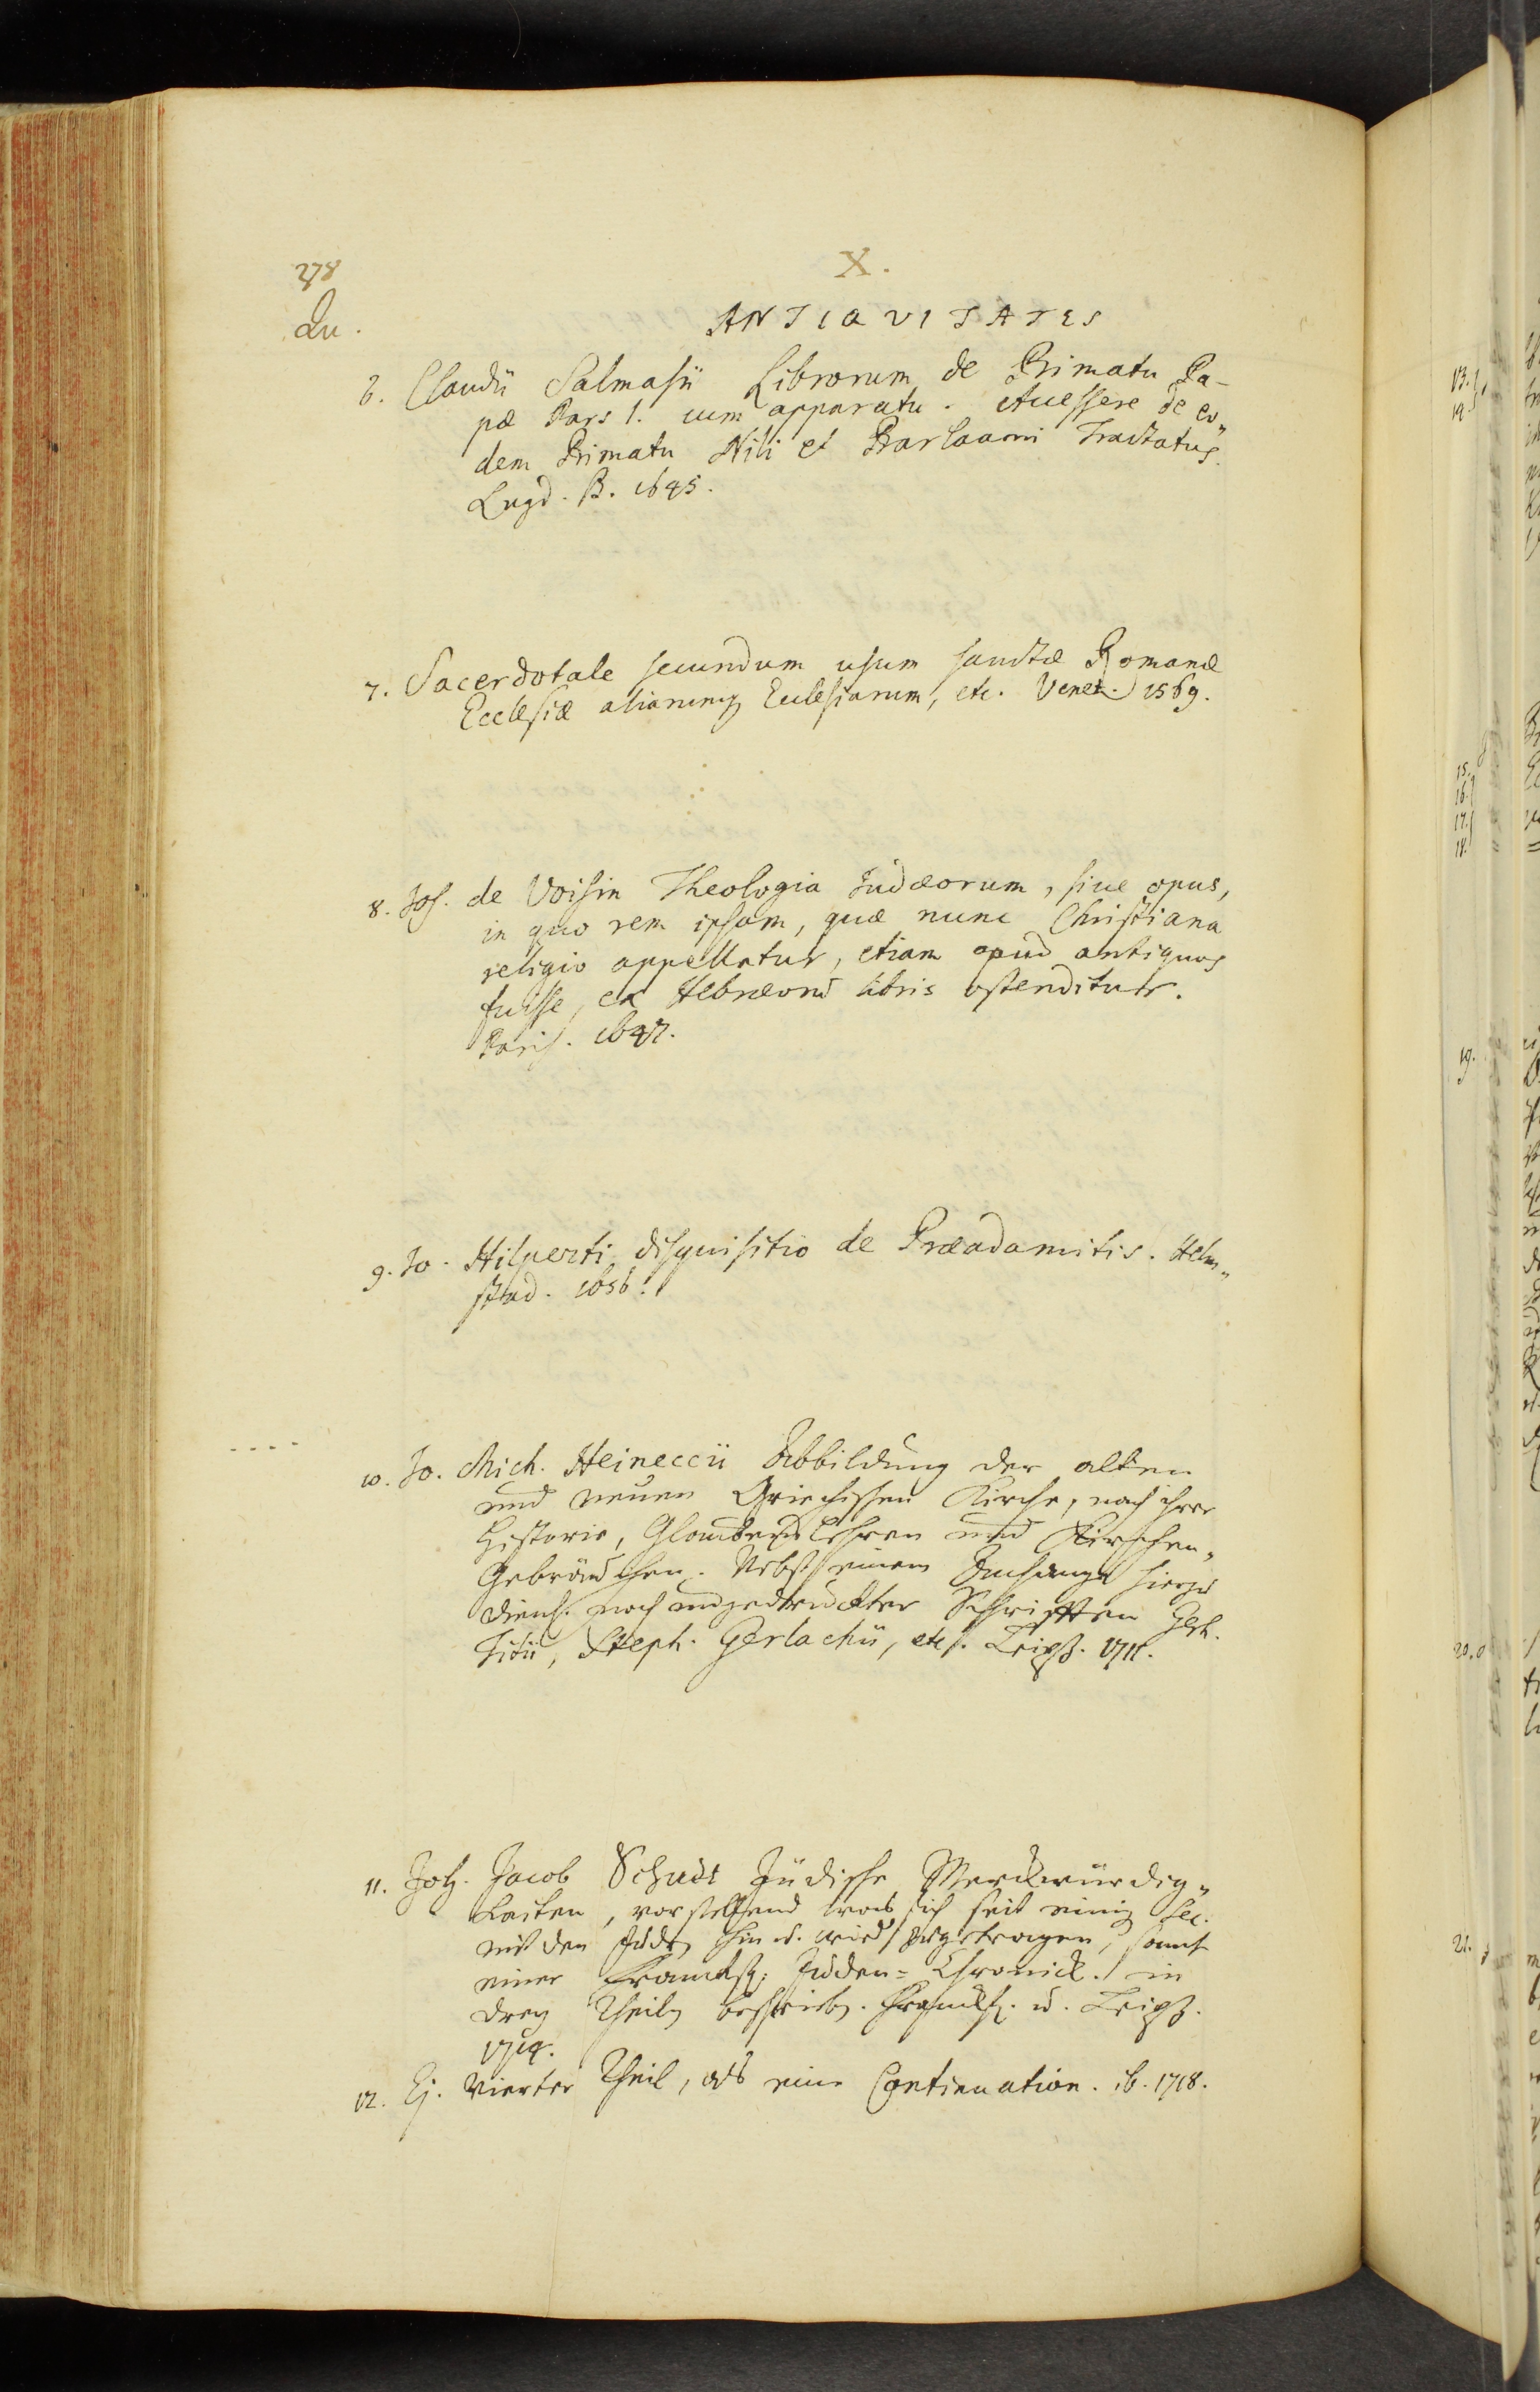 278
X.
Qu.
ANTIQVITATES
6. Claudii Salmasii Librorum de Primatu Pa-
pæ Pars 1. cum apparatu. Accessere de eo„
dem Primatu Nili et Barlaami Tractatus.
Lugd. B. 1645.
7. Sacerdotale secundum usum sanctæ Romanæ
Ecclesiæ aliarumq Ecclesiarum, etc. Venet. 1569.
8. Jos. de Voisin Theologia Judæorum, sive opus,
in quo rem ipsam, quæ nunc Christiana
religio appellatur, etiam apud antiquos
fuisse, ex Hebræorũ libris ostenditur.
Paris. 1647.
9. Jo. Hilperti disquisitio de Præadamitis. Helm„
stad. 1656.
10. Jo. Mich. Heineccii Abbildung der alten
und neuen Griechischen Kirche, nach ihrer
Historie, Glaubenslehren und Kirchen„
Gebräuchen. Nebst einem Anhange hierzu
dienl. noch ungedruckter Schrifften
Steph. Gerlachii, etc. Leipz. 1711.
11. Joh. Jacob Schudt Jüdische Merckwürdig„
keiten, vorstellend was sich seit einig Sec.
mit den Judẽ hin u. wied zugetragen, samt
einer Franckf. Juden= Chronick. in
drey Theilẽ beschriebẽ. Franckf. u. Leipz.
1714.
12. Ej. Vierter Theil, als eine Continuation. ib. 1718.
15.
16.
17.
18.
19.
20.
21.